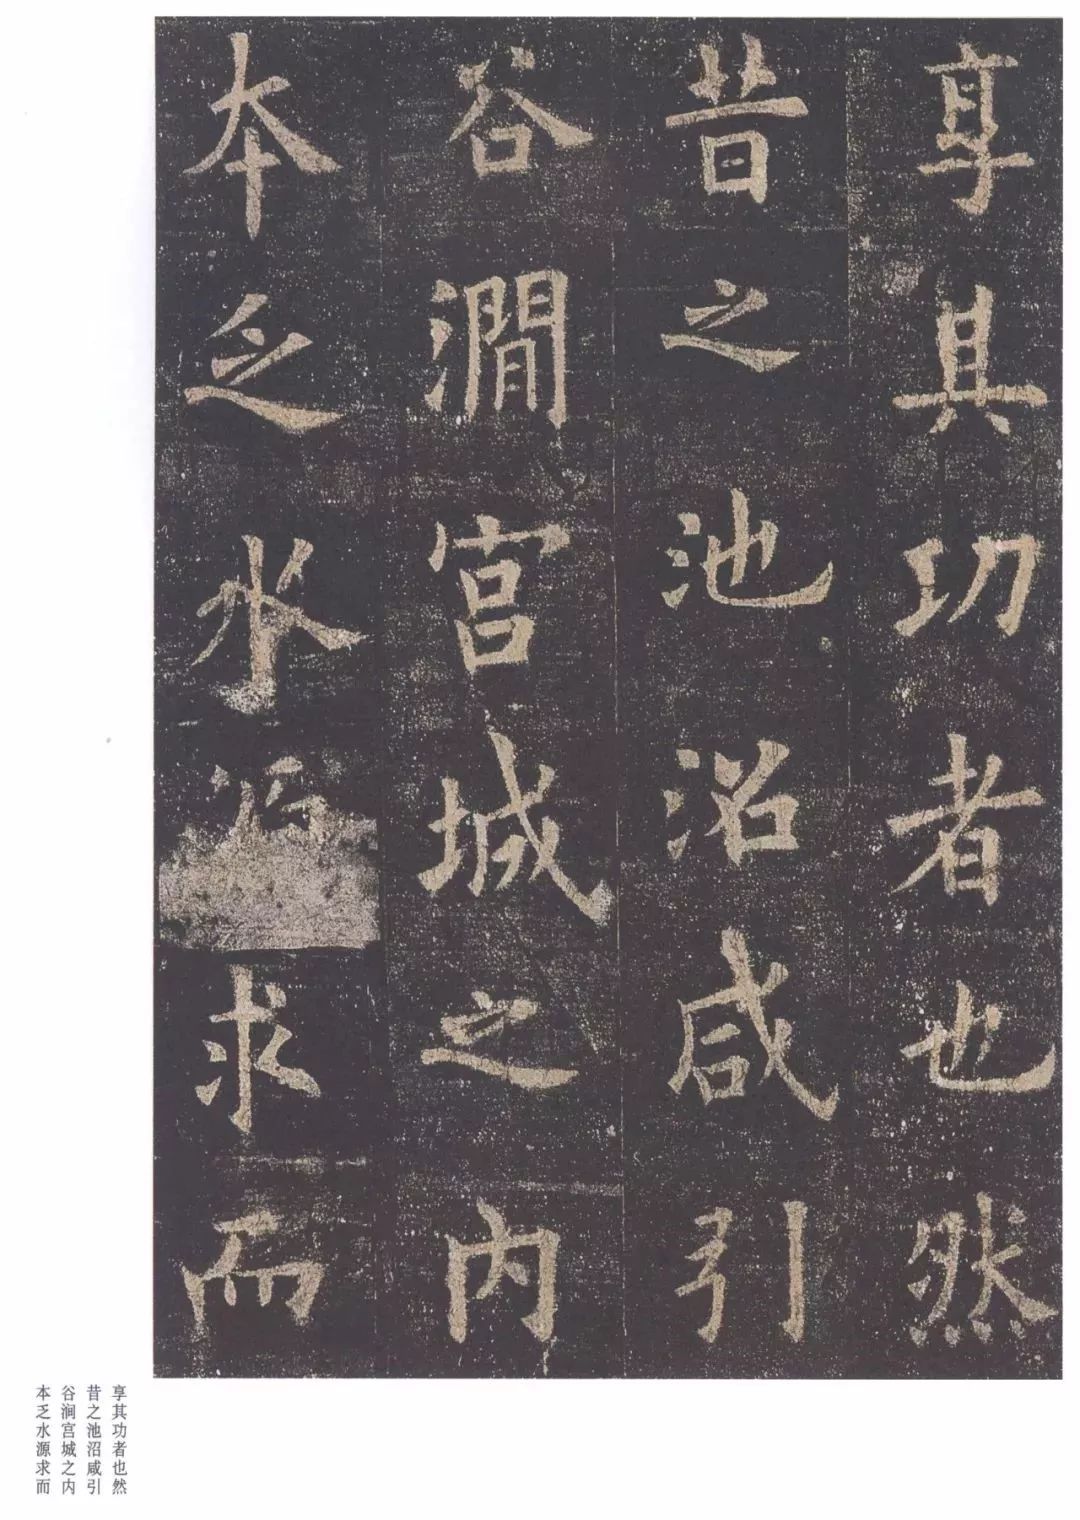 享其功者也然
昔之池沼咸引
谷澗宮城之内
本乏水源求而
享其功者也然
昔之池沼咸引
谷涧宫城之内
本乏水源求而